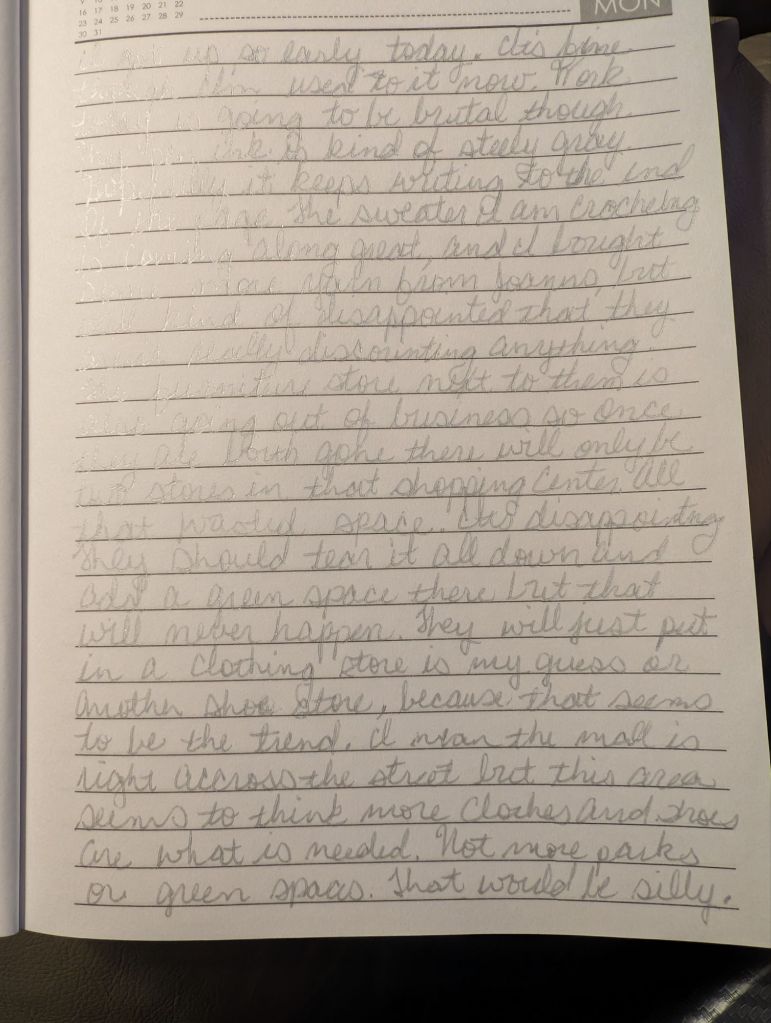 9 10
16 17 18 19 20 21 22
23 24 25 26 27 28 29
30 31
MON
I got up so early today. Its fine
though I'm used to it now. Work
today is going to be brutal though.
My pen ink is kind of steely gray.
Hopefully it keeps writing to the end
of the page. The sweater I am crocheing
is coming along great, and I bought
some more yarn from Joanns, but
kind of disappointed that they
really discounting anything
The furniture store next to them is
also going out of business so once
they are both gone there will only be
two stores in that shopping center. All
that wasted space. Its disappointing
They should tear it all down and
add a green space there but that
will never happen. They will just put
in a clothing store is my guess or
another shoe store, because that seems
to be the trend. I mean the mall is
right accross the street but this area
seems to think more cloches and shoes
are what is needed. Not more parks
or green spaces. That would be silly.